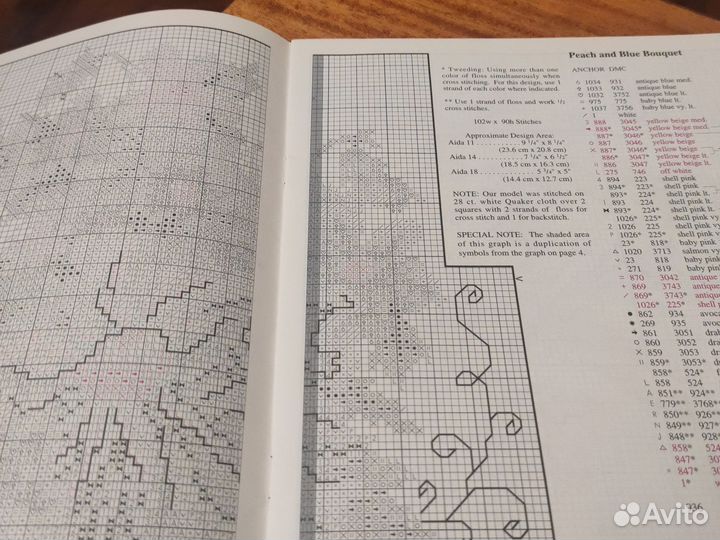 Peach and Blue Bouquet
* Tweeding: Using more than one
color of floss simultaneously when
cross stitching. For this design, use 1
strand of each color where indicated.
** Use 1 strand of floss and work 1/2
cross stitches.
102w x 90h Stitches
Approximate Design Area:
Aida 11 9 1/4" x 8 1/4"
(23.6 cm x 20.8 cm)
Aida 14 7 1/4" x 6 1/2"
(18.5 cm x 16.3 cm)
Aida 18 5 3/4" x 5"
(14.4 cm x 12.7 cm)
NOTE: Our model was stitched on
28 ct. white Quaker cloth over 2
squares with 2 strands of floss for
cross stitch and 1 for backstitch.
SPECIAL NOTE: The shaded area
of this graph is a duplication of
symbols from the graph on page 4.
ANCHOR DMC
1034 931 antique blue med.
1033 932 antique blue
1032 3752 antique blue lt.
= 975 775 baby blue lt.
+ 1037 3756 baby blue vy. lt.
/ 1 white
888 3045 yellow beige med.
888* 3045* yellow beige med.
887* 3046* yellow beige
887 3046 yellow beige
887* 3046* yellow beige
886* 3047* yellow beige lt.
886 3047 yellow beige lt.
L 275 746 off white
4 894 223 shell pink
2 894* 223* shell pink
893* 224* shell pink lt.
893 224 shell pink lt.
893* 224* shell pink lt.
1026* 225* shell pink vy
2 1026 225 shell pink vy
1026* 225* shell pink vy
23* 818* baby pink
△ 1020 3713 salmon vy
v 23 818 baby pink
+ 271 819 baby pink
= 870 3042 antique
+ 869 3743 antique
/ 869* 3743* antiqu
1026* 225* shell
● 862 934 avoca
269 935 avoc
861 3051 drab
o 860 3052 dra
x 859 3053 dra
859* 3053* d
858* 524* f
L 858 524
A 851** 924**
E 779** 3768**
R 850** 926**
N 849** 927*
J 848** 928*
△ 858* 524
847* 30
847* 30
1* w
Avito